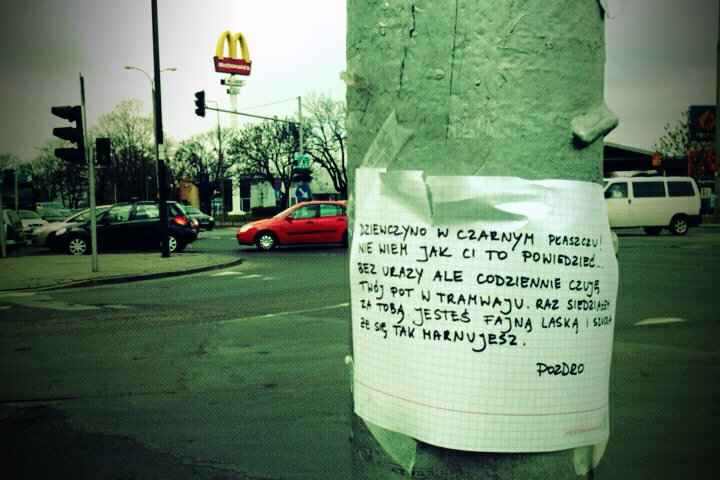 McDonald's
DZIEWCZYNO W CZARNYM PŁASZCZU!
NIE WIEM JAK CI TO POWIEDZIEĆ...
BEZ URAZY ALE CODZIENNIE CZUJĘ
TWÓJ POT W TRAMWAJU. RAZ SIEDZIAŁEM
ZA TOBĄ. JESTEŚ FAJNĄ LASKĄ I SZKODA
ŻE SIĘ TAK MARNUJESZ.
POZDRO